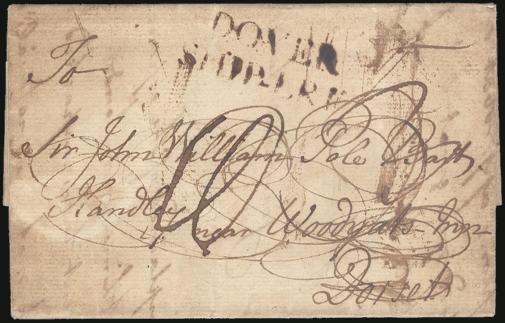 DOVER
SHIP LRE
To
Sir John William Pole Bart.
Handley near Woodyats Inn
Dorset